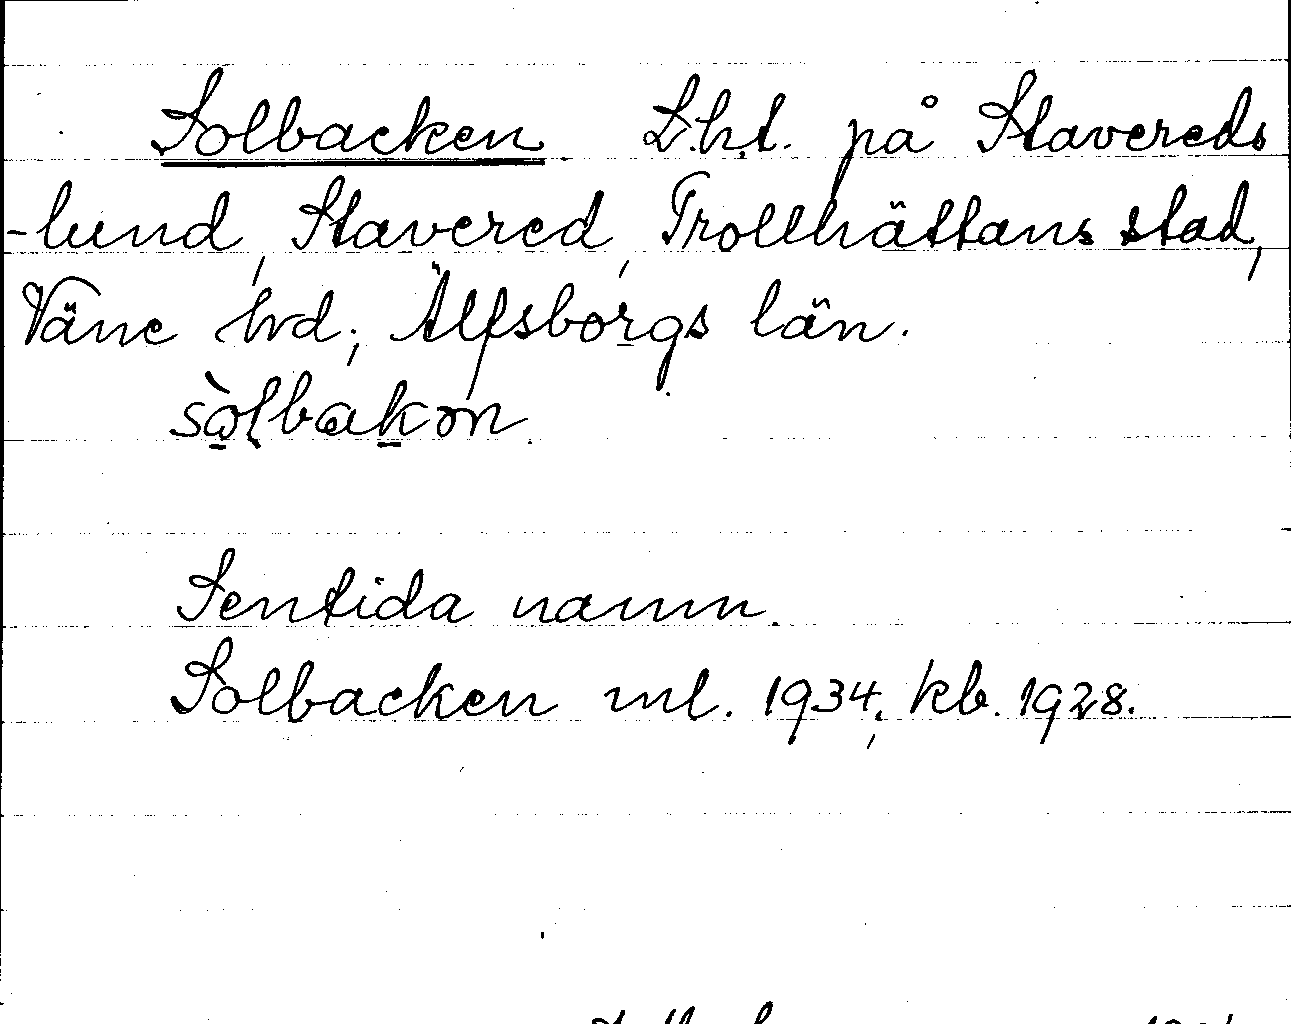 Solbacken L.h.t. på Stavereds
-lund, Stavered, Trollhättans stad,
Väne hd; Älfsborgs län.
Sentida namn.
Solbacken ml. 1934; kb. 1928.